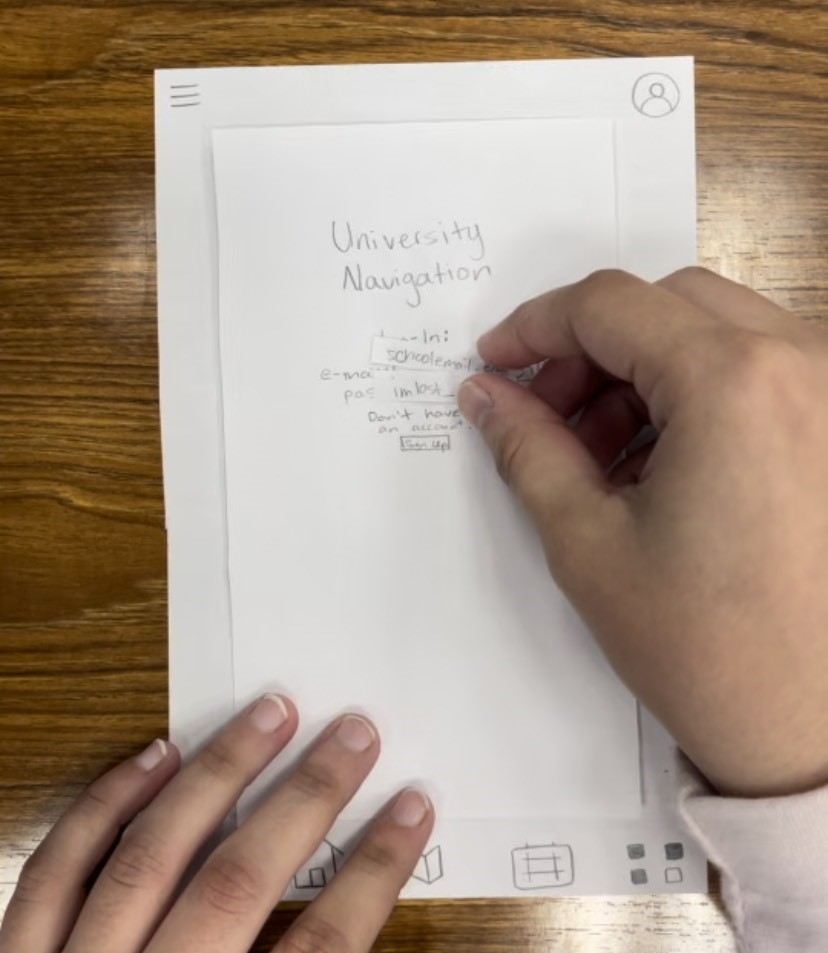 University
Navigation
In:
schoolemail
e-ma
pas imlost_
Don't have
an account?
Sign Up